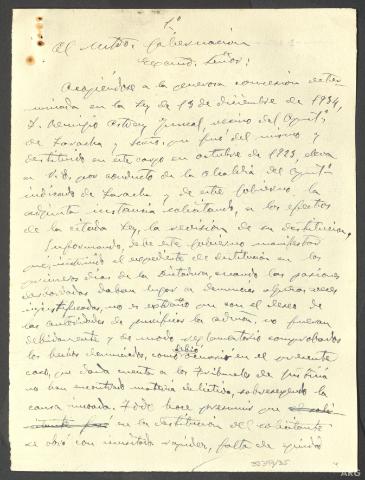 1º
Al Mtro. Gobernación
Excmo. Señor:
Acogiéndose a la generosa concesión deter-
minada en la Ley de 13 de diciembre de 1934,
D. Remigio vecino del Aynto
de Laracha y Secrio. que fué del mismo y
destituido en este cargo en octubre de 1923, eleva
a V.E., por conducto de la Alcaldía del Aynto
indicado de Laracha y de este Gobierno la
adjunta instancia solicitando, a los efectos
de la citada Ley, la revisión de su destitución.
Informando, debe este Gobierno manifestar
que, instruido el expediente de destitución en los
primeros días de la Dictadura, cuando las pasiones
desbordadas daban lugar a denuncias algunas veces
injustificadas, no es extraño que con el deseo de
las autoridades de purificar la admon. no fueran
debidamente y de modo reglamentario comprobados
los hechos denunciados, como debió ocurrir en el presente
caso, que dada cuenta a los Tribunales de Justicia
no han encontrado materia delictiva, sobreseyendo la
causa incoada. Todo hace presumir que
en la destitución del solicitante
se obró con inusitada rapidez, falta de
ARG